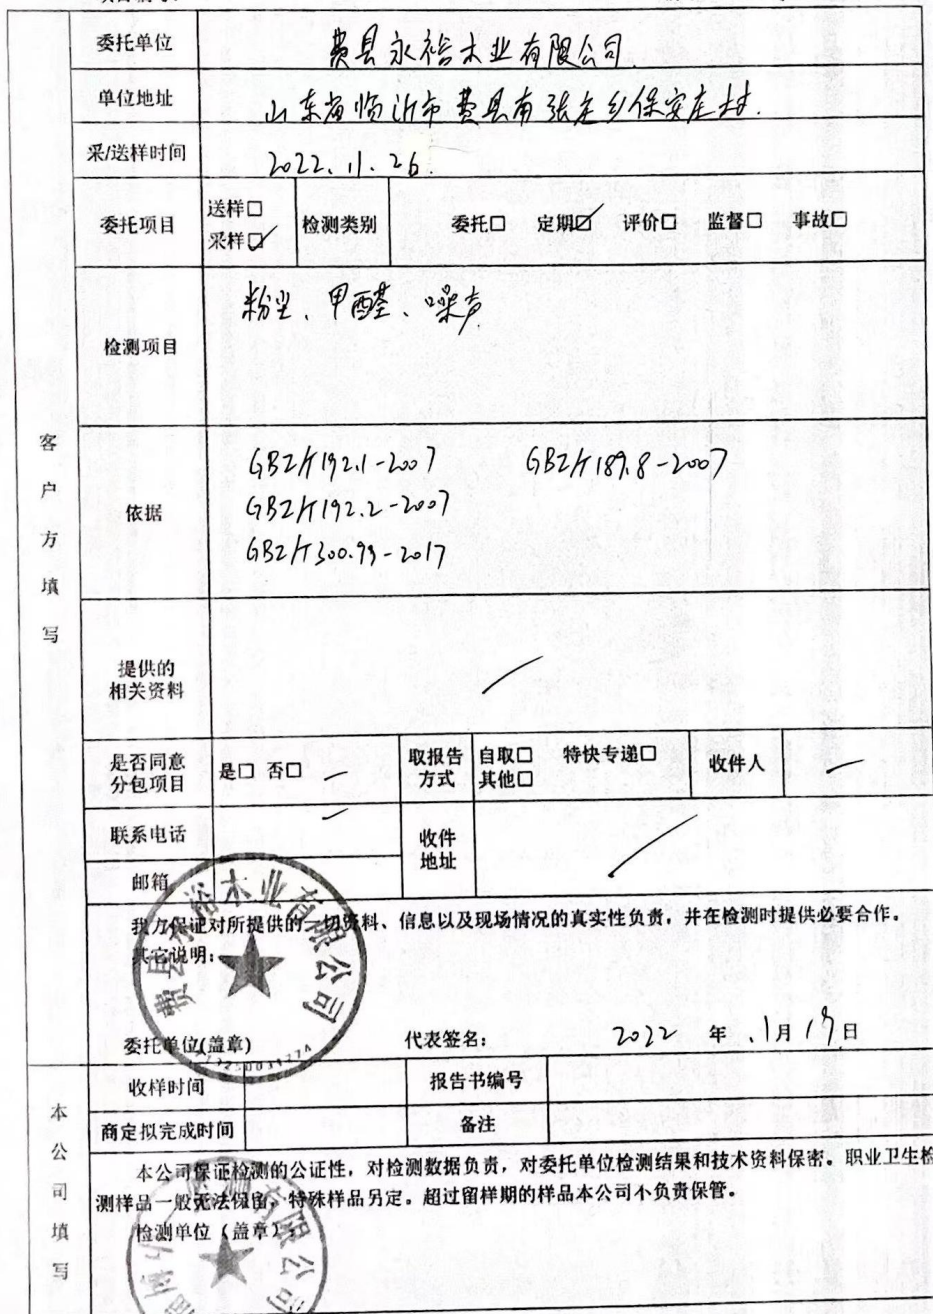 委托单位 费县永裕木业有限公司
单位地址 山东省临沂市费县南张庄乡保安庄村.
采/送样时间 2022.11.26.
委托项目 送样□ 采样☑ 检测类别 委托□ 定期☑ 评价□ 监督□ 事故□
检测项目 粉尘、甲醛、噪声
客户方填写
依据
GBZ/T192.1-2007 GBZ/T189.8-2007
GBZ/T192.2-2007
GBZ/T300.99-2017
提供的
相关资料
是否同意
分包项目 是□ 否□
取报告
方式 自取□ 特快专递□
其他□
收件人
联系电话
收件
地址
邮箱
我方保证对所提供的一切资料、信息以及现场情况的真实性负责，并在检测时提供必要合作。
其它说明：
费县永裕木业有限公司
委托单位(盖章) 代表签名： 2022 年 11月 19日
本公司填写
收样时间 报告书编号
商定拟完成时间 备注
本公司保证检测的公证性，对检测数据负责，对委托单位检测结果和技术资料保密。职业卫生检
测样品一般无法保留，特殊样品另定。超过留样期的样品本公司不负责保管。
检测单位（盖章）：
限公司